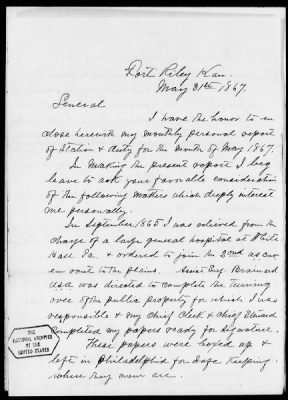 Fort Riley Kan.
May 31st 1867.
General
I have the honor to en
close herewith my monthly personal report
of Station & duty for the month of May 1867.
In making the present report I beg
leave to ask your favorable consideration
of the following matters which deeply interest
me personally.
In September 1865 I was relieved from the
charge of a large general hospital at White
Hall Pa. & ordered to join the 2nd as
en route to the plains. Asst Surg. Brainard
USA was directed to complete the turning
over of the public property for which I was
responsible & my Chief Clerk & Chief Steward
completed my papers ready for signature.
These papers were boxed up &
left in Philadelphia for safe keeping
where they now are.
THE
NATIONAL ARCHIVES
OF THE
UNITED STATES